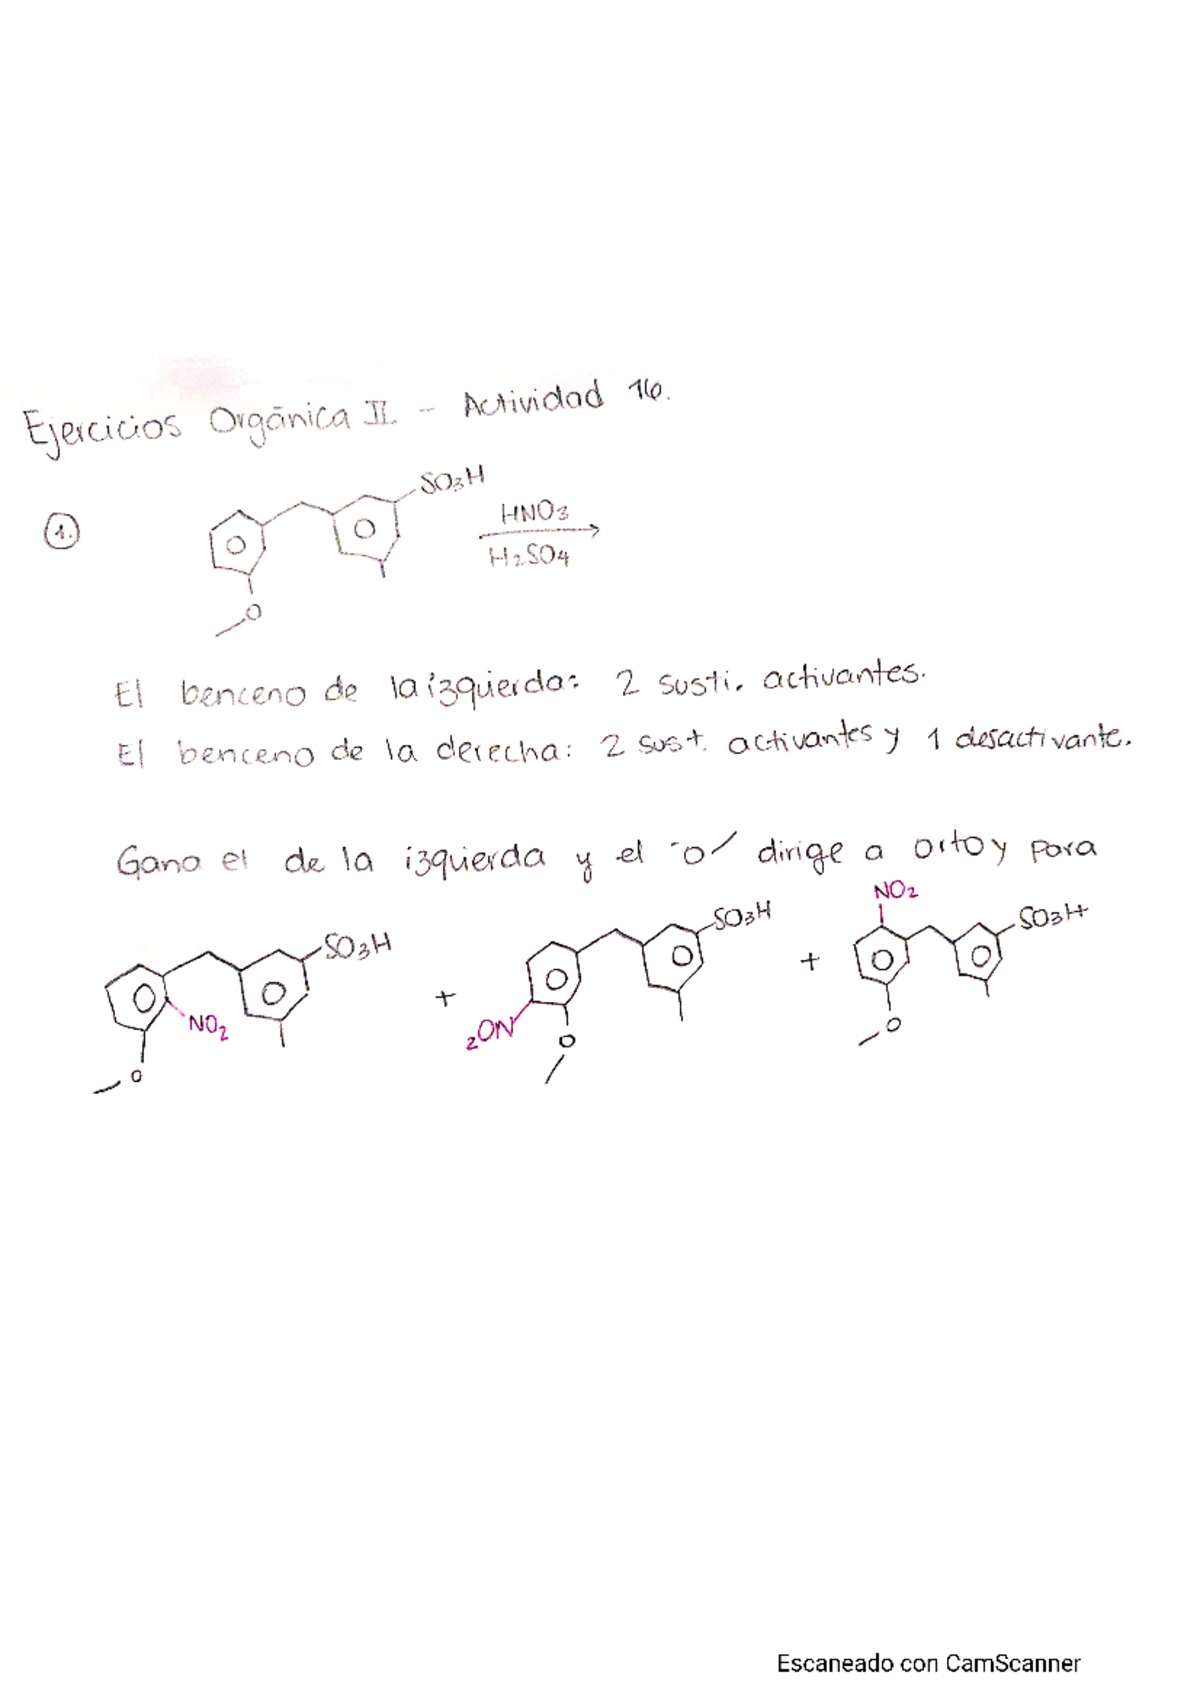 Ejercicios Orgánica II. - Actividad 16.
SO3H
1.
HNO3
H2SO4
O
El benceno de la izquierda: 2 susti. activantes.
El benceno de la derecha: 2 sust. activantes y 1 desactivante.
Gana el de la izquierda y el -o- dirige a orto y para
NO2
SO3H + SO3H + SO3H
NO2 2ON
O O O
Escaneado con CamScanner